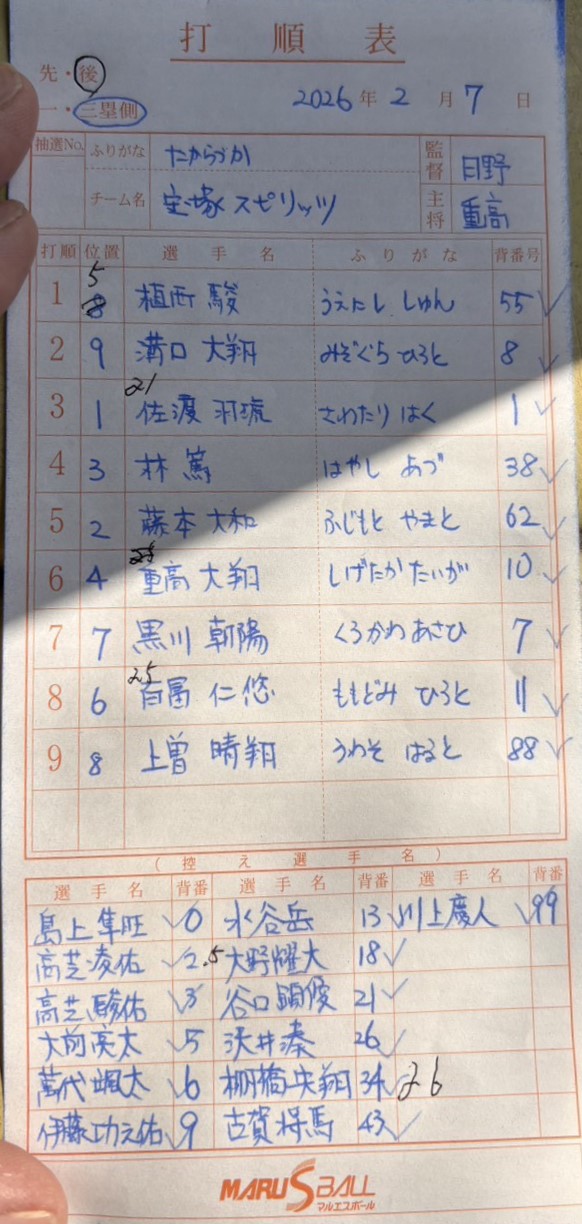 打順表
先・後
2026年2月7日
一・三塁側
抽選No. ふりがな たからづか 監督 日野
チーム名 宝塚スピリッツ 主将 重高
打順 位置 選手名 ふりがな 背番号
5
1 8 植西 駿 うえにし しゅん 55
2 9 溝口 大翔 みぞぐち ひろと 8
21
3 1 佐渡 羽琥 さわたり はく 1
4 3 林 篤 はやし あづ 38
5 2 藤本 大和 ふじもと やまと 62
6 4 重高 大翔 しげたか たいが 10
7 7 黒川 朝陽 くろかわ あさひ 7
25
8 6 百冨 仁悠 ももどみ ひろと 11
9 8 上曽 晴翔 うわそ はると 88
(控え選手名)
選手名 背番 選手名 背番 選手名 背番
島上隼旺 0 水谷岳 13 川上慶人 99
高芝凌佑 2 .5 大野耀大 18
高芝駿佑 3 谷口顕俊 21
大前亮太 5 沢井湊 26
萬代颯太 6 棚橋央翔 34 26
伊藤功之佑 9 古賀将馬 43
MARUSBALL
マルエスボール